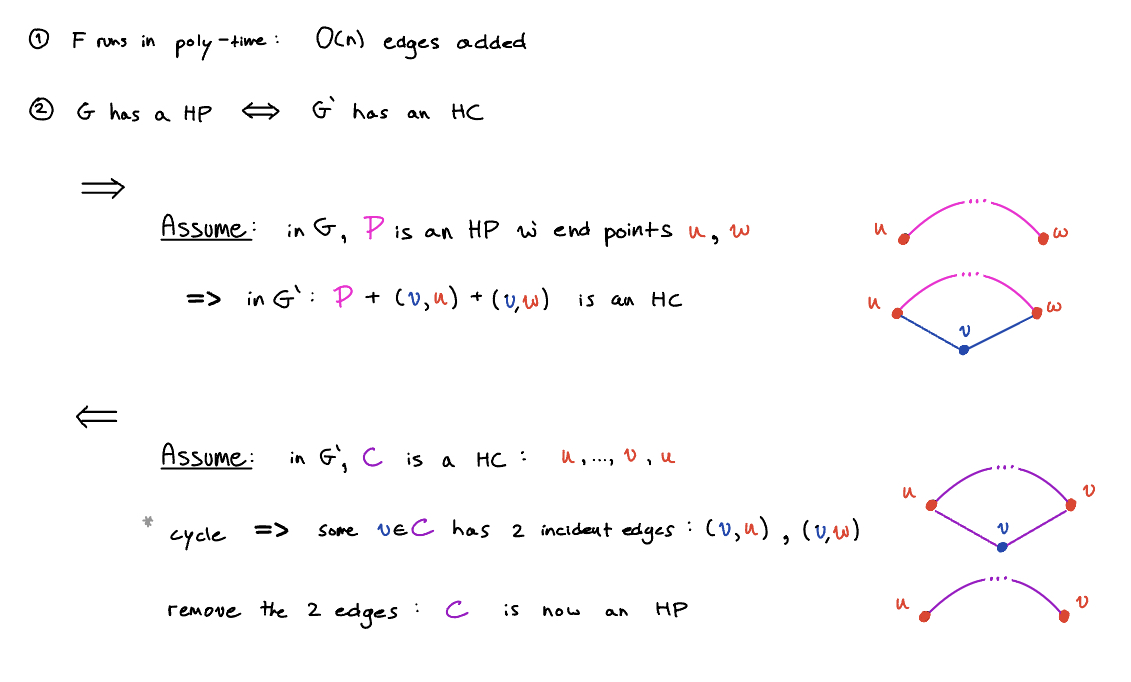 ① F runs in poly-time: O(n) edges added
② G has a HP ⟺ G` has an HC
⟹
Assume: in G, P is an HP w̄ end points u, w
u ... w
=> in G`: P + (v,u) + (v,w) is an HC
u ... w
v
⟸
Assume: in G`, C is a HC: u, ..., v, u
u ... v
v
* cycle => some v∈C has 2 incident edges: (v,u), (v,w)
remove the 2 edges: C is now an HP
u ... v